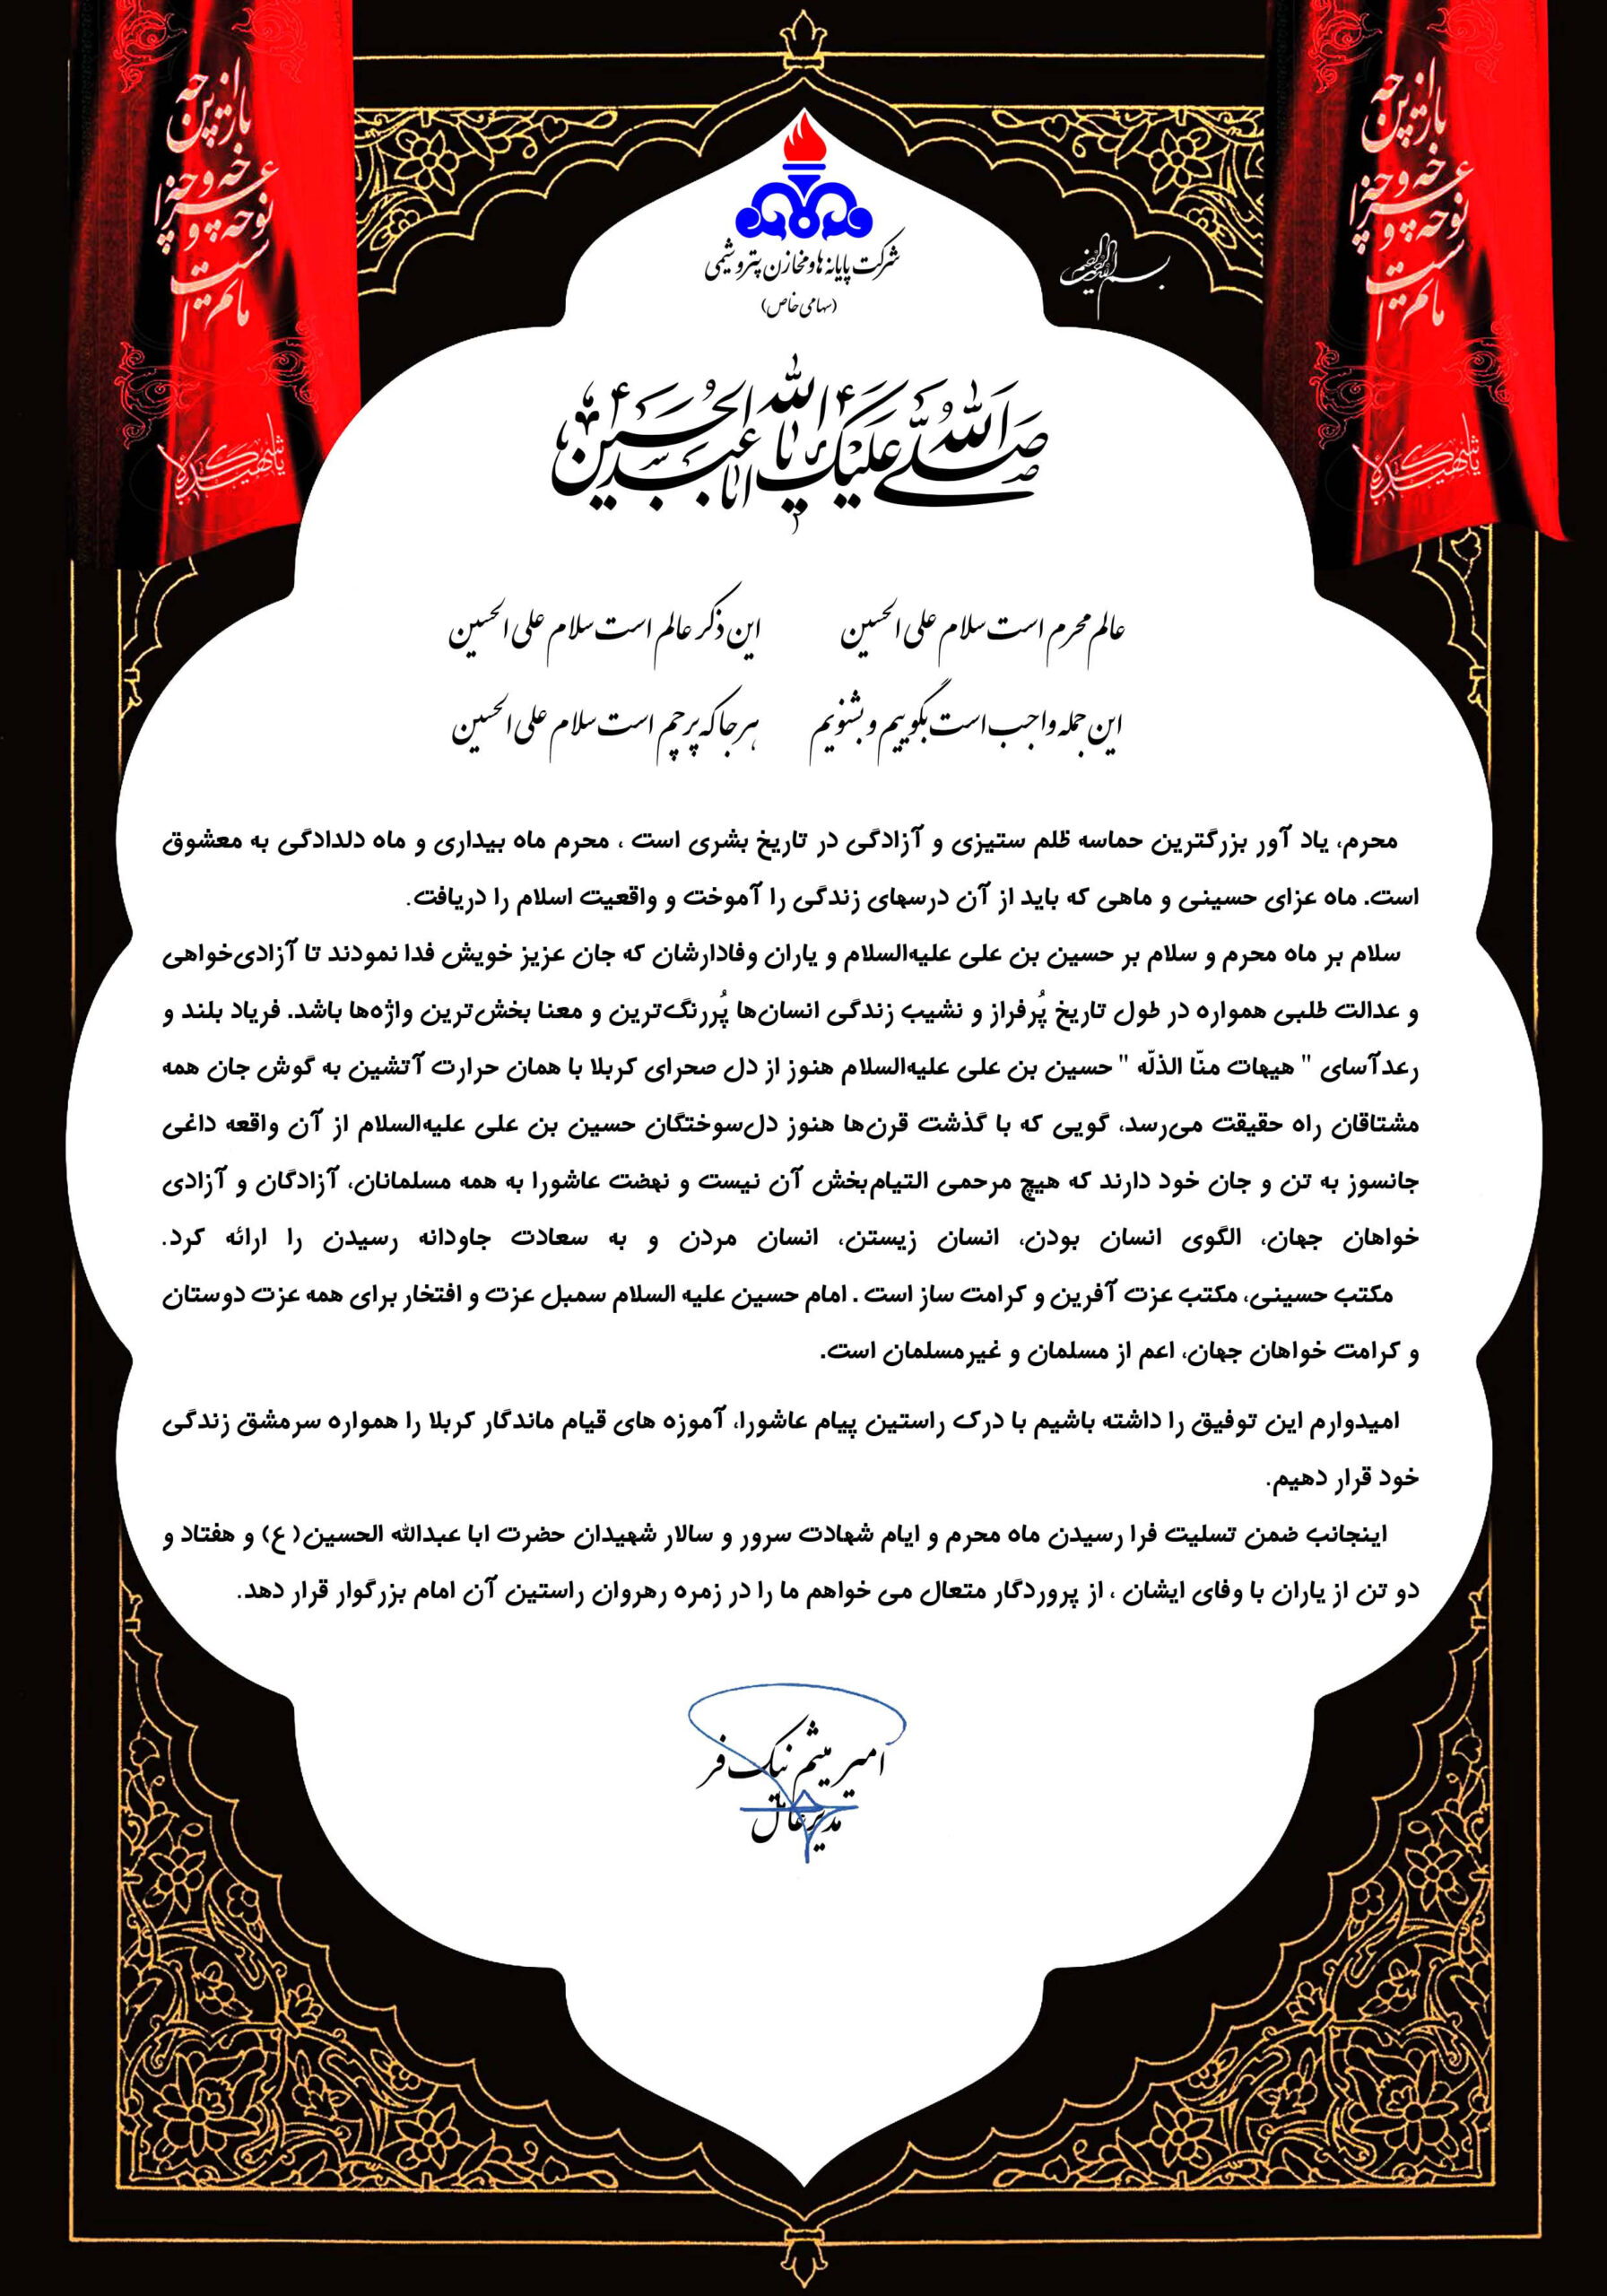 بسم الله الرحمن الرحیم
شرکت پایانه ها و مخازن پتروشیمی
(سهامی خاص)
باز این چه
نوحه و چه عزا و چه
ماتم است
یا شهید کربلا
باز این چه
نوحه و چه عزا و چه
ماتم است
یا شهید کربلا
صلی الله علیک یا ابا عبدالله الحسین
عالم محرم است سلام علی الحسین این ذکر عالم است سلام علی الحسین
این جمله واجب است بگوییم و بشنویم هر جا که پرچم است سلام علی الحسین
محرم، یاد آور بزرگترین حماسه ظلم ستیزی و آزادگی در تاریخ بشری است ، محرم ماه بیداری و ماه دلدادگی به معشوق
است. ماه عزای حسینی و ماهی که باید از آن درسهای زندگی را آموخت و واقعیت اسلام را دریافت.
سلام بر ماه محرم و سلام بر حسین بن علی علیه‌السلام و یاران وفادارشان که جان عزیز خویش فدا نمودند تا آزادی‌خواهی
و عدالت طلبی همواره در طول تاریخ پُرفراز و نشیب زندگی انسان‌ها پُررنگ‌ترین و معنا بخش‌ترین واژه‌ها باشد. فریاد بلند و
رعدآسای " هیهات منّا الذلّه " حسین بن علی علیه‌السلام هنوز از دل صحرای کربلا با همان حرارت آتشین به گوش جان همه
مشتاقان راه حقیقت می‌رسد، گویی که با گذشت قرن‌ها هنوز دل‌سوختگان حسین بن علی علیه‌السلام از آن واقعه داغی
جانسوز به تن و جان خود دارند که هیچ مرحمی التیام‌بخش آن نیست و نهضت عاشورا به همه مسلمانان، آزادگان و آزادی
خواهان جهان، الگوی انسان بودن، انسان زیستن، انسان مردن و به سعادت جاودانه رسیدن را ارائه کرد.
مکتب حسینی، مکتب عزت آفرین و کرامت ساز است . امام حسین علیه السلام سمبل عزت و افتخار برای همه عزت دوستان
و کرامت خواهان جهان، اعم از مسلمان و غیرمسلمان است.
امیدوارم این توفیق را داشته باشیم با درک راستین پیام عاشورا، آموزه های قیام ماندگار کربلا را همواره سرمشق زندگی
خود قرار دهیم.
اینجانب ضمن تسلیت فرا رسیدن ماه محرم و ایام شهادت سرور و سالار شهیدان حضرت ابا عبدالله الحسین( ع) و هفتاد و
دو تن از یاران با وفای ایشان ، از پروردگار متعال می خواهم ما را در زمره رهروان راستین آن امام بزرگوار قرار دهد.
امیر میثم نیک فر
مدیر عامل